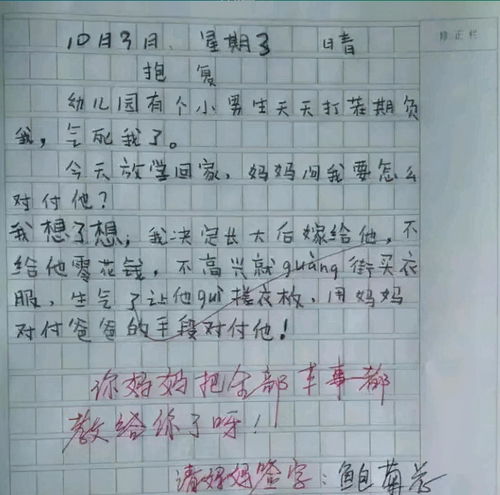 10月3日 星期3 晴
抱复
幼儿园有个小男生天天打茬期负
我，气死我了。
今天放学回家，妈妈问我要怎么
对付他？
我想了想，我决定长大后嫁给他，不
给他零花钱，不高兴就guàng街买衣
服，生气了让他guì搓衣板，用妈妈
对付爸爸的手段对付他！
你妈妈把全部本事都
教给你了呀！
请妈妈签字：鲍菊
修正栏